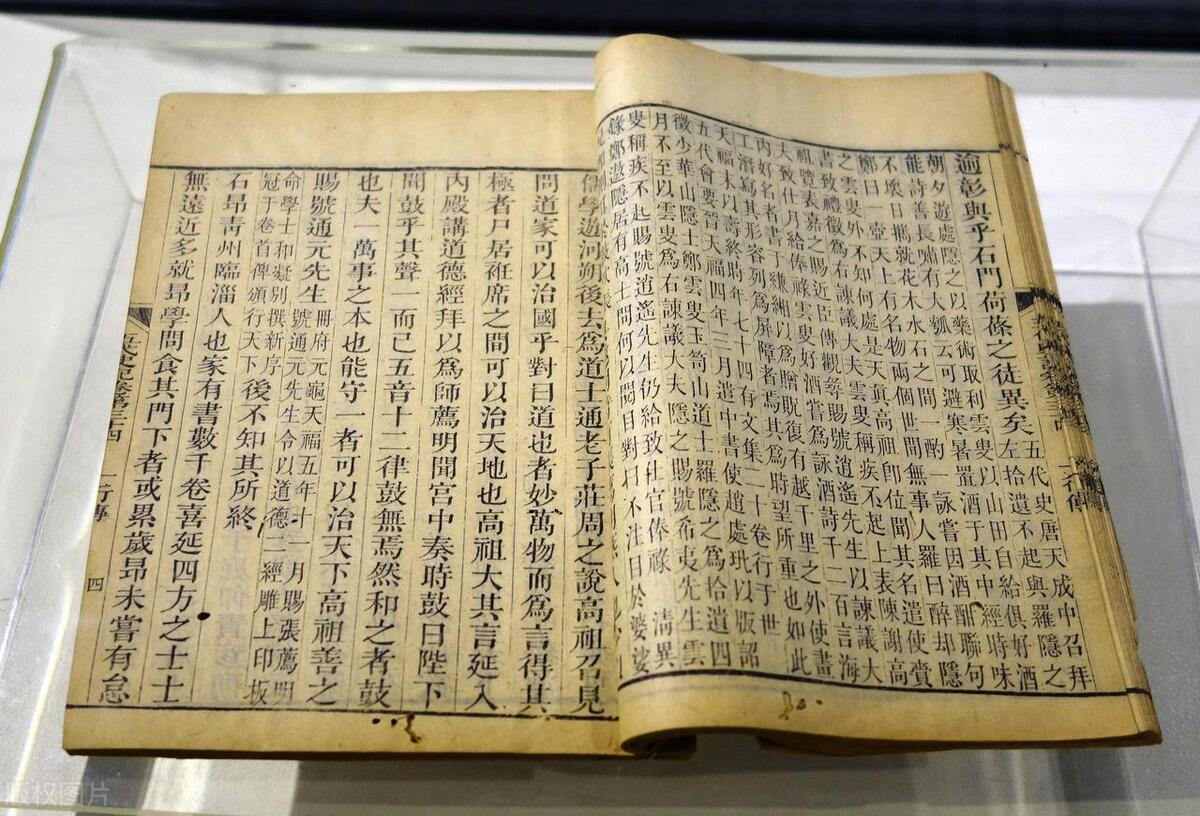 逾彰與乎石門荷蓧之徒異矣
五代史唐天成中召拜
左拾遺不起與羅隱之
朝夕遊處隱之以藥術取利雲叟以山田自給俱好酒
能詩善長嘯有大瓢云可避寒暑置酒于其中經時味
不壞日攜就花木水石之間一酌一詠嘗因酒酣聯句
鄭曰一壺天上有名物兩個世間無事人羅曰醉却隱
之雲叟外不知何處是天真高祖卽位聞其名遣使賫
書致禮徵爲右諫議大夫雲叟稱疾不起上表陳謝高
祖覽表嘉之賜近臣傳觀尋賜號逍遙先生以諫議大
夫致仕月給俸祿雲叟好酒嘗爲詠酒詩千二百言海
內好名者書于縑緗以爲贈貺復有越千里之外使畫
工潛寫其形容列爲屏障者焉其爲時望所重也如此
天福末以壽終時年七十四有文集二十卷行于世
五代會要晉天福四年三月遣中書使趙處玭以版詔
徵少華山隱士鄭雲叟玉笥山道士羅隱之爲拾遺四
月不至以雲叟爲右諫議大夫隱之賜號希夷先生雲
叟稱疾不起賜號逍遙先生仍給致仕官俸祿 清異
錄鄭遨隱居有高士問何以閱目對曰不注目於婆娑
儒學遊河朔後去爲道士通老子莊周之說高祖召見
問道家可以治國乎對曰道也者妙萬物而爲言得其
極者尸居袵席之間可以治天地也高祖大其言延入
內殿講道德經拜以爲師薦明聞宮中奏時鼓曰陛下
聞鼓乎其聲一而已五音十二律鼓無焉然和之者鼓
也夫一萬事之本也能守一者可以治天下高祖善之
賜號通元先生
冊府元龜天福五年十一月賜張薦明
號通元先生令以道德二經雕上印板
命學士和凝別撰新序
冠于卷首俾頒行天下
後不知其所終
石昂靑州臨淄人也家有書數千卷喜延四方之士士
無遠近多就昂學問食其門下者或累歲昂未嘗有怠
四
版权图片